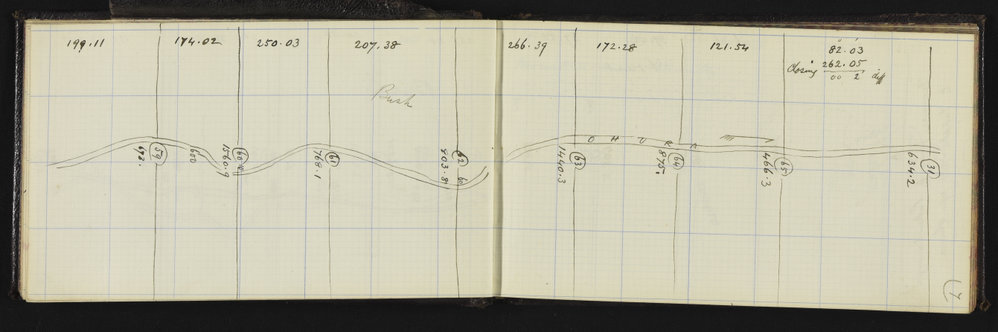 199.11
174.02
250.03
207.38
Bush
59
650
1560.9
60
61
768.1
62
403.8
266.39
172.28
121.54
82.03
Closing 262.05
00 2 diff
O H U R A
63
1440.3
64
875.
65
466.3
31
634.2